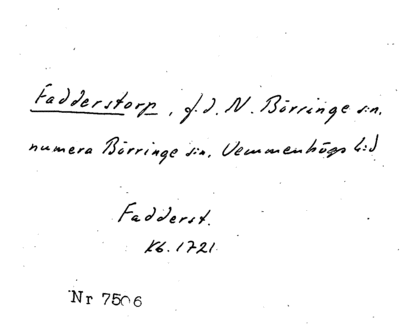 Fadderstorp, f.d. N. Börringe sn,
numera Börringe sn, Vemmenhögs hd
Fadderst.
Kb. 1721
Nr 7506